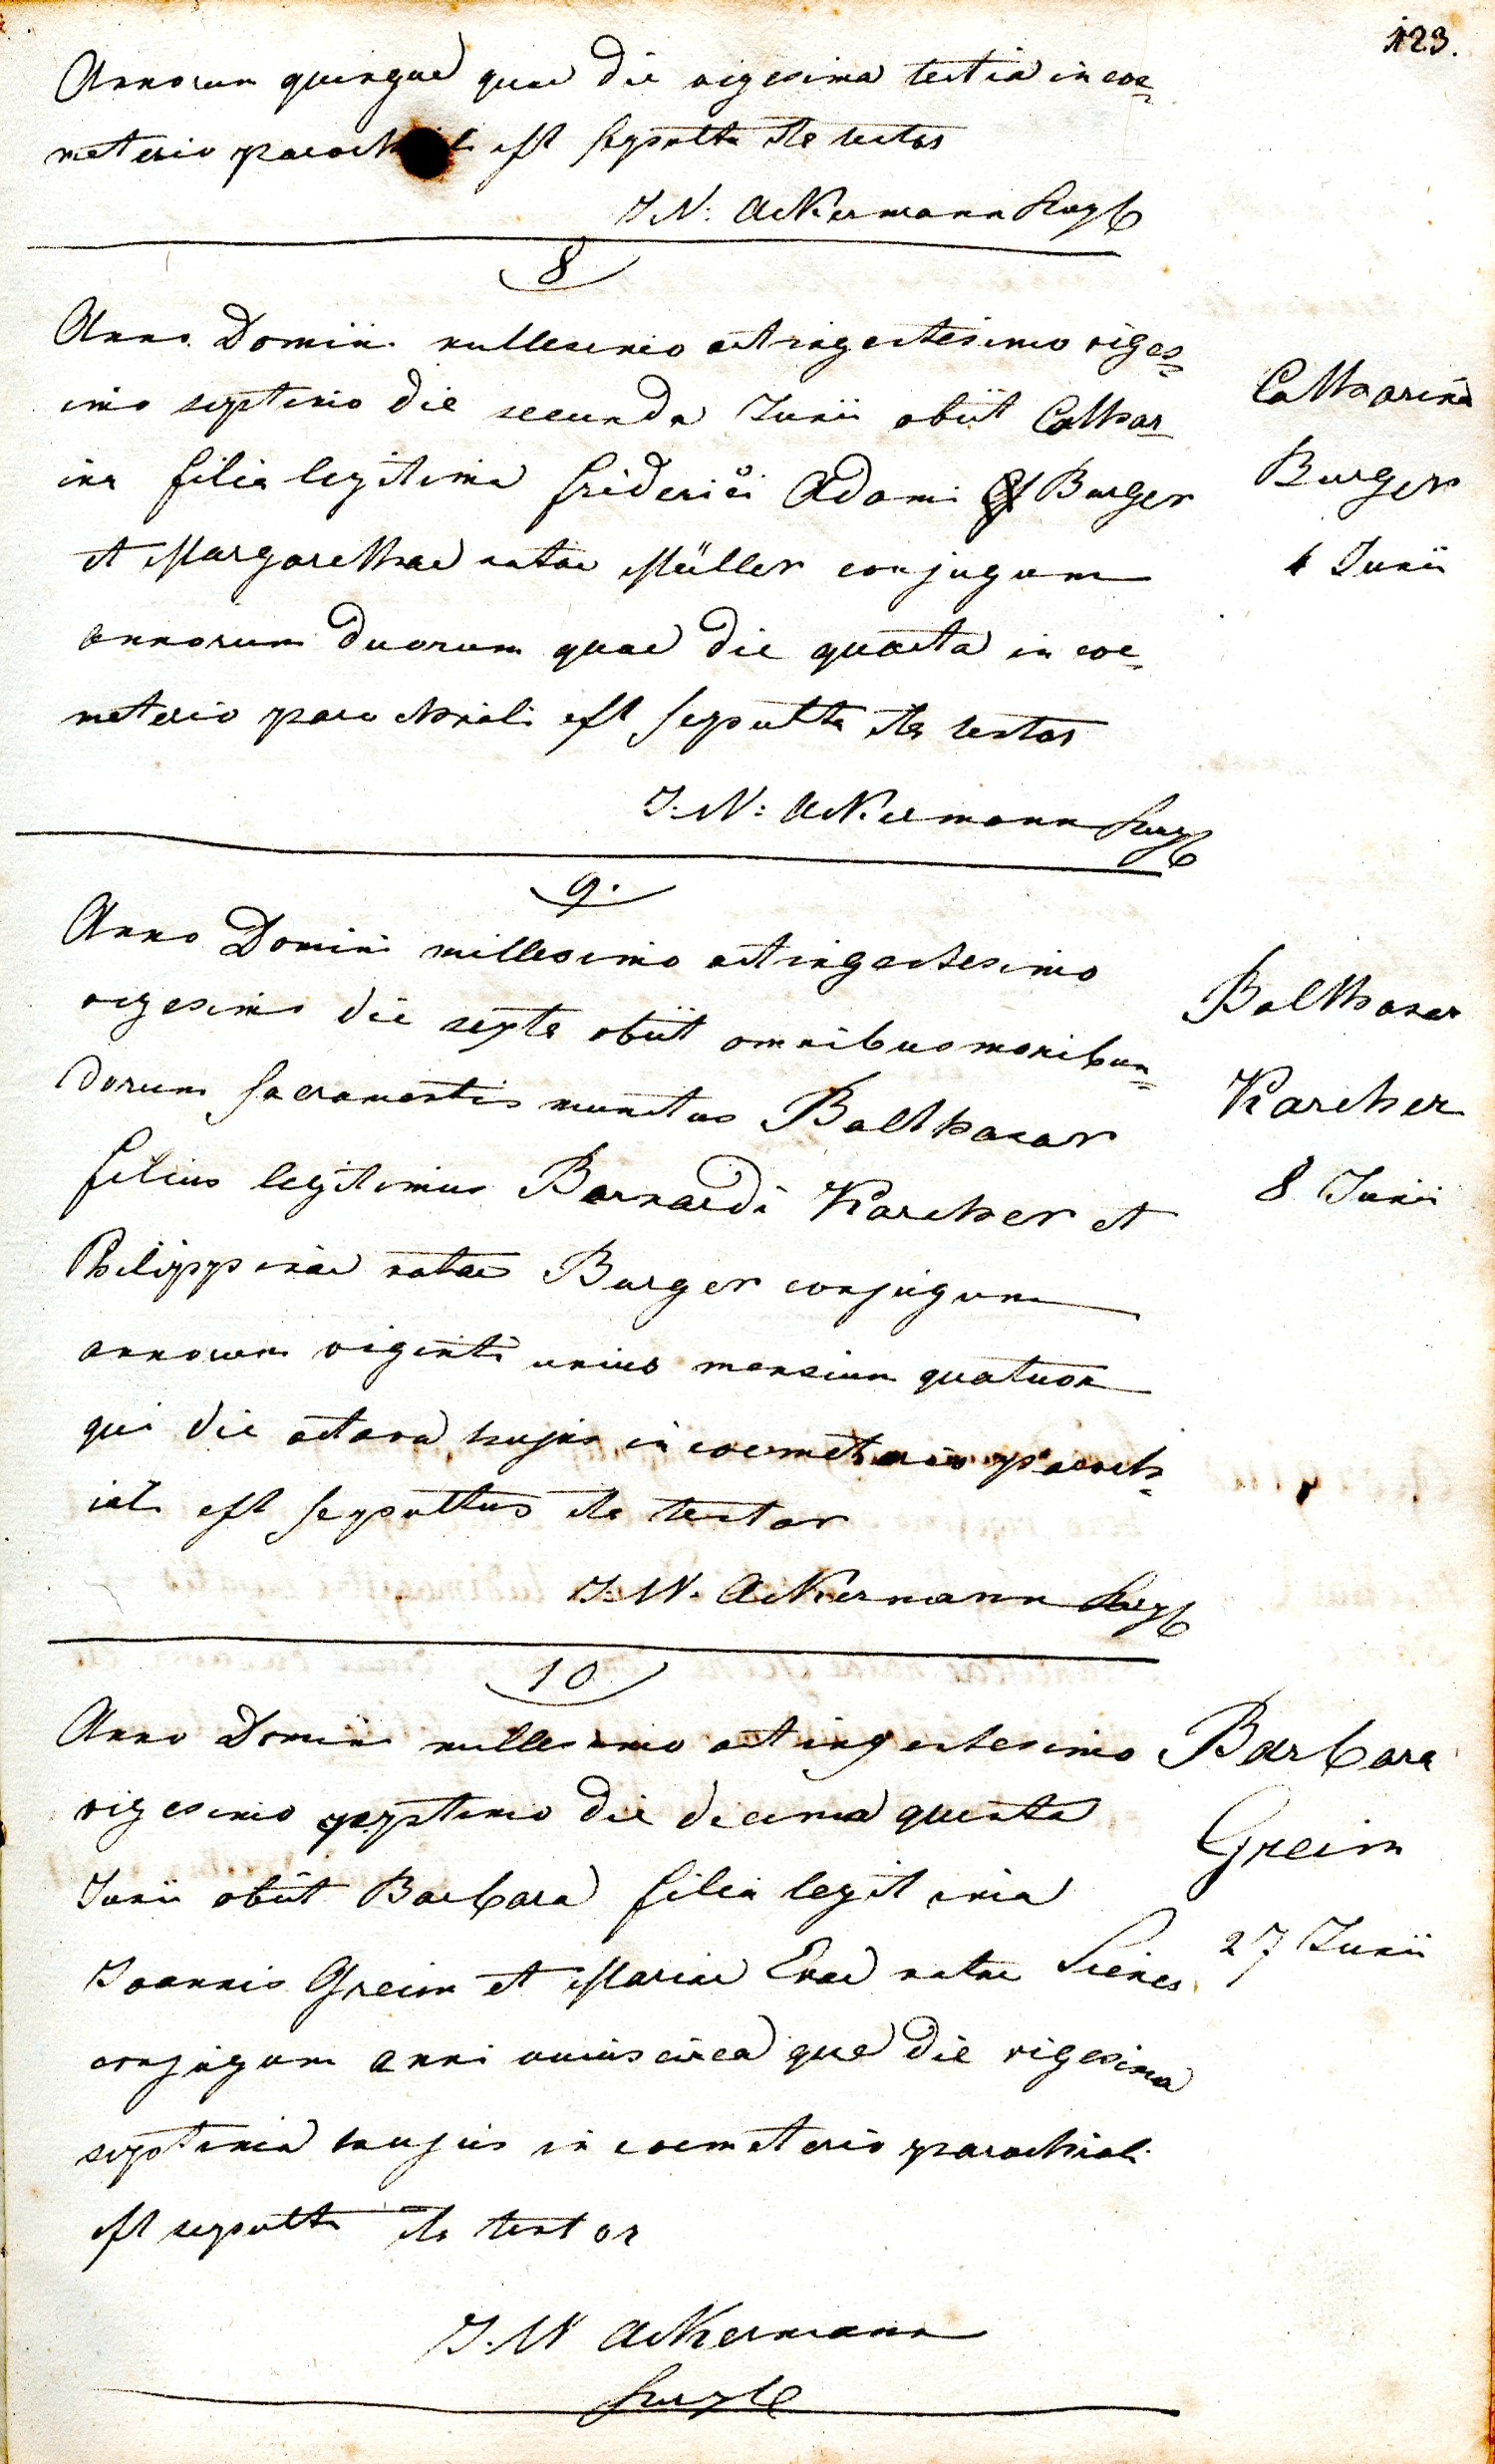 123.
Annorum quinque quae die vigesima tertia in coe=
meterio paroch li est sepulta ita testor
J. N: Ackermann
8
Anno Domini millesimo octingentesimo viges=
imo septimo die secunda Junii obiit Cathar=
ina filia legitima Friderici Adami Burger
et Margarethae natae Müller conjugum
annorum duorum quae die quarta in coe=
meterio parochiali est sepulta ita testor
J. N: Ackermann
Catharina
Burger
4 Junii
9.
Anno Domini millesimo octingentesimo
vigesimo die septe obiit omnibus moribun=
dorum sacramentis munitus Balthasar
filius legitimus Bernardi Karcher et
Philippinae natae Burger conjugum
annorum viginti unius mensium quatuor
qui die octava hujus in coemeterio paroch=
iali est sepultus ita testor
J. N. Ackermann
Balthasar
Karcher
8 Junii
10
Anno Domini millesimo octingentesimo
vigesimo septimo die decima quinta
Junii obiit Barbara filia legitima
Joannis Greim et Mariae Evae natae
conjugum anni unius circa quae die vigesima
septima hujus in coemeterio parochiali
est sepulta ita testor
J. N Ackermann
Barbara
Greim
27 Junii